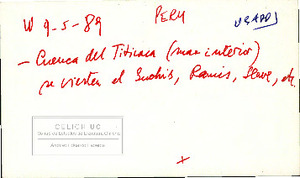 W 9-5-89 PERU
- Cuenca del Titicaca (mar interior)
se vierten el Suchis, Ramis, Ilave, etc.
CELICH UC
+